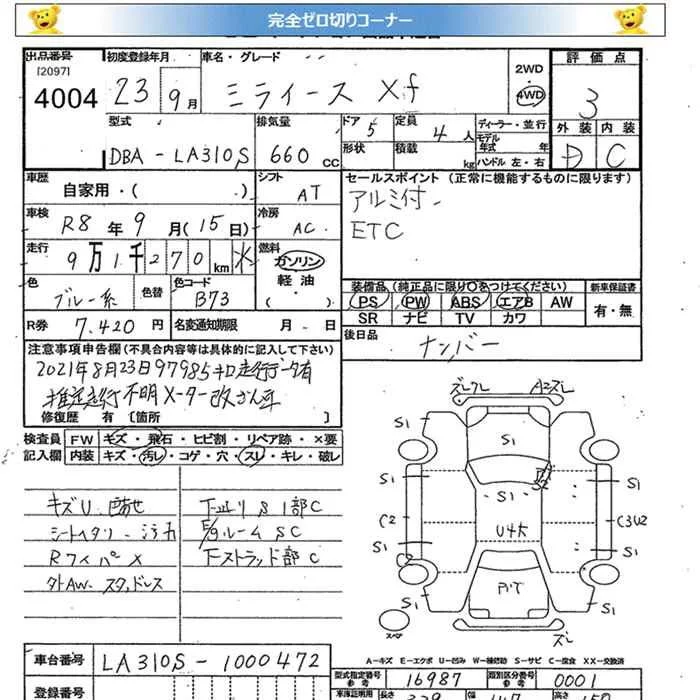 完全ゼロ切りコーナー
出品番号 初度登録年月 車名・グレード 2WD 評価点
[2097]
4004 23 9月 ミライース Xf 4WD 3
型式 排気量 ドア 5 定員 4人 ディーラー・並行 外装 内装
DBA-LA310S 660 CC 形状 積載 kg モデル年式 年 ハンドル 左・右 D C
車歴 自家用・( ) シフト AT セールスポイント (正常に機能するものに限ります)
アルミ付
車検 R8年9月(15日) 冷房 AC
ETC
走行 9万1千270km 燃料 ガソリン
軽油
( )
色 ブルー系 色替 色コード B73
装備品 (純正品に限り○をつけてください) 新車保証書
PS PW ABS エアB AW 有・無
SR ナビ TV カワ
R券 7,420円 名変通知期限 月 日
後日品 ナンバー
注意事項申告欄(不具合内容等は具体的に記入して下さい)
2021年8月23日97985キロ走行データ有
推定走行不明メーター改ざん車
修復歴 有 [箇所 ]
検査員 FW キズ・飛石・ヒビ割・リペア跡・×要
記入欄 内装 キズ・汚レ・コゲ・穴・スレ・キレ・破レ
キズU 色あせ 下廻りS 1部C
シートヘタリ・汚れ E/gルームSC
RワイパX 下ストラッド部C
外AW.スタッドレス
ズレ
S1 S1
S1
S1 S1 S1
C2 U4大 C3U2
S1 S1
S1 S1
スペア ズレ
A-キズ E-エクボ U-凹み W-補修跡 S-サビ C-腐食 XX-交換済
車台番号 LA310S-1000472
型式指定番号 参考 16987 類別区分番号 参考 0001
登録番号